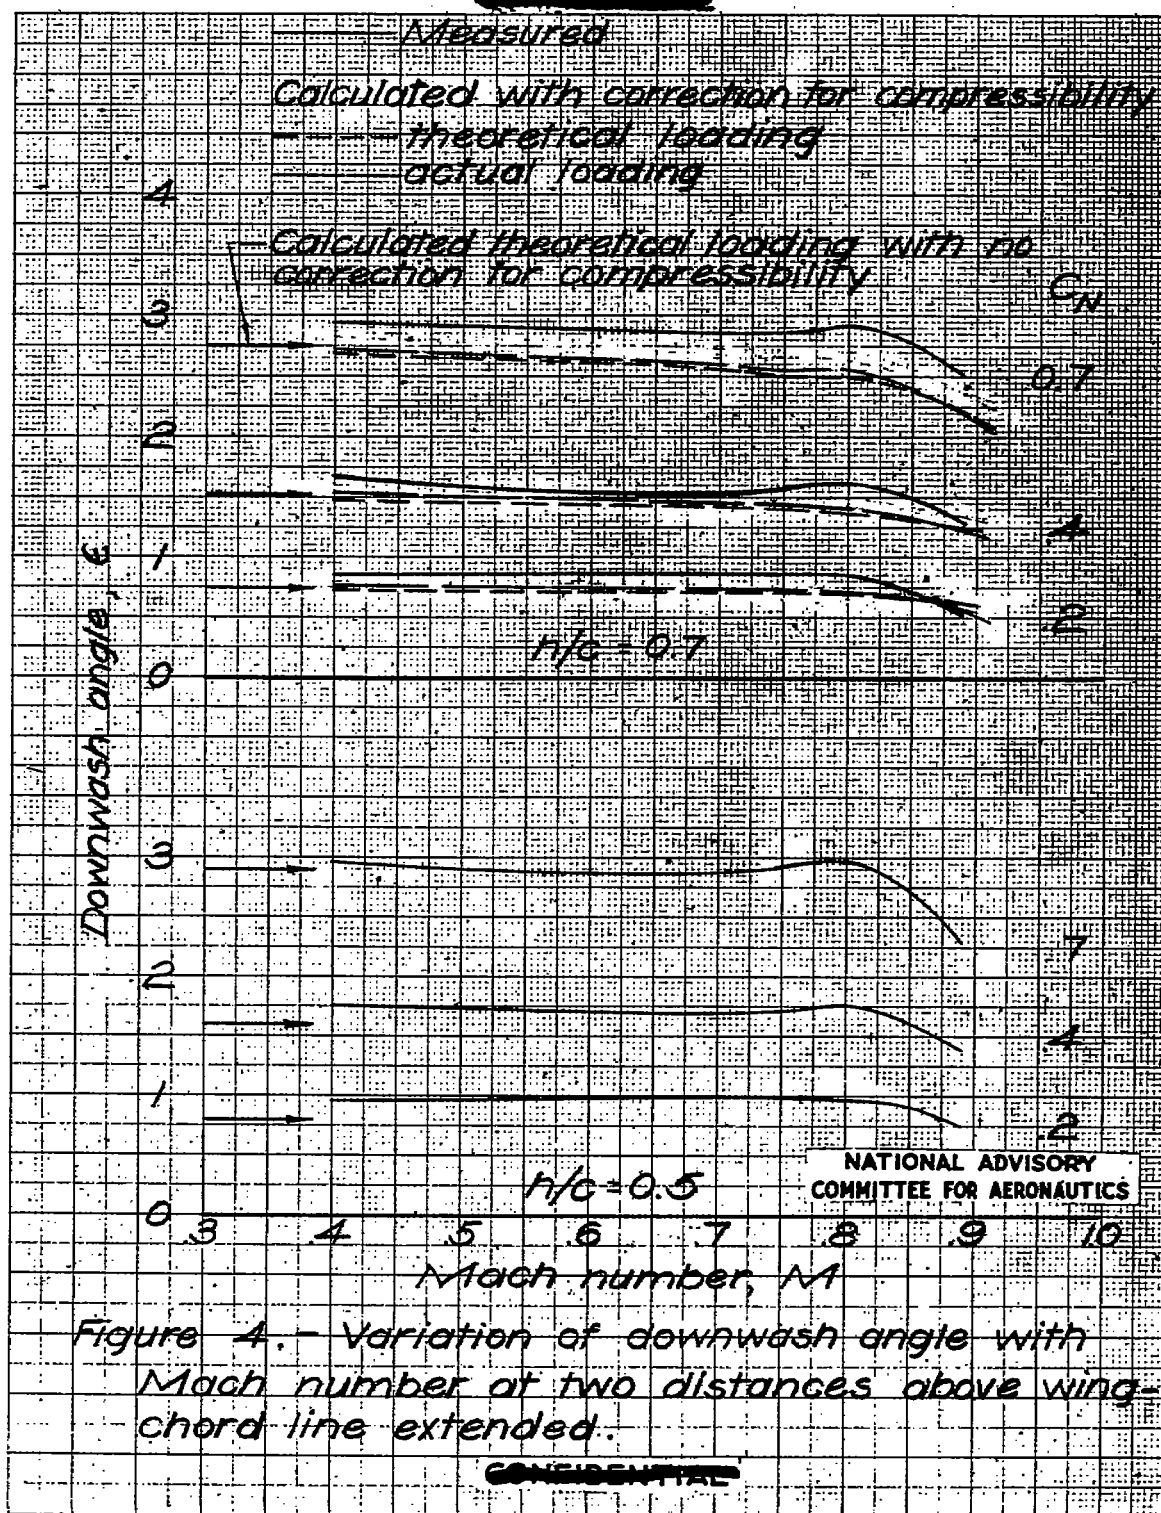 Measured
Calculated with correction for compressibility
theoretical loading
actual loading
4
Calculated theoretical loading with no
correction for compressibility
C_N
3
0.7
2
.4
1
.2
h/c = 0.7
0
Downwash angle, ϵ
3
.7
2
.4
1
.2
NATIONAL ADVISORY
COMMITTEE FOR AERONAUTICS
h/c = 0.5
0
.3 .4 .5 .6 .7 .8 .9 1.0
Mach number, M
Figure 4.- Variation of downwash angle with
Mach number at two distances above wing-
chord line extended.
CONFIDENTIAL